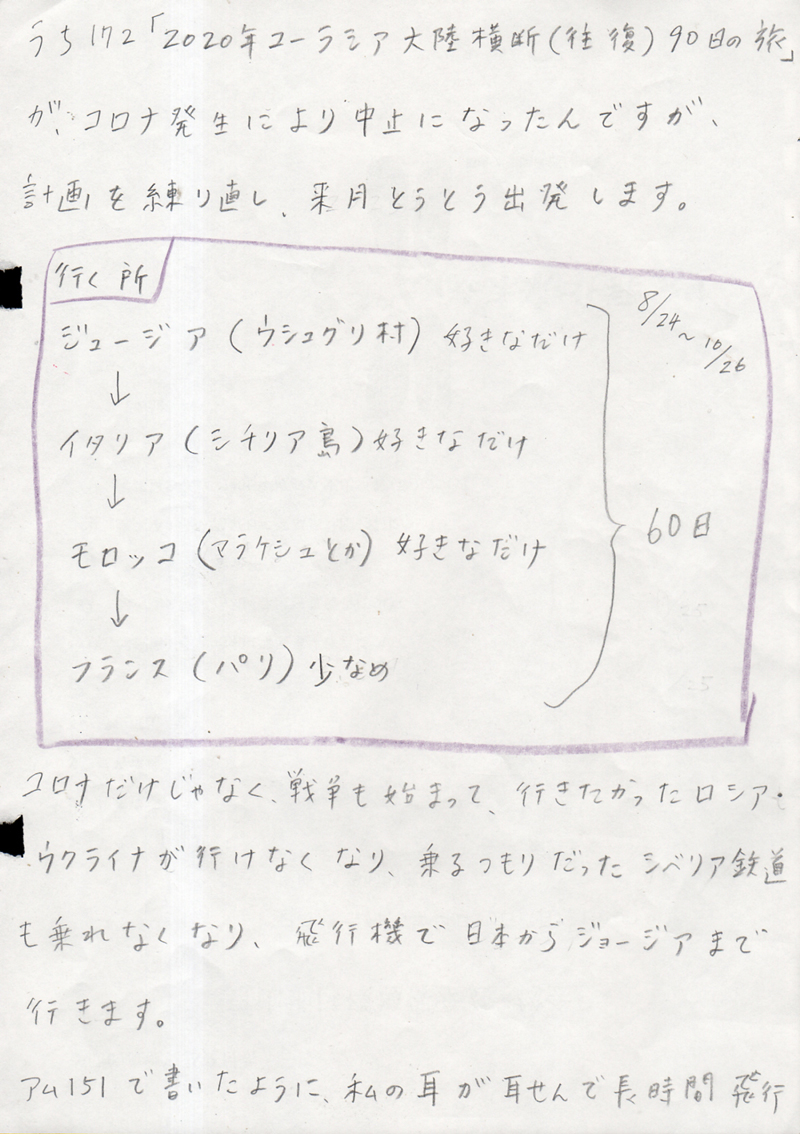 うち172「2020年ユーラシア大陸横断(往復)90日の旅」
が、コロナ発生により中止になったんですが、
計画を練り直し、来月とうとう出発します。
行く所
8/24〜10/26
ジュージア(ウシュグリ村)好きなだけ
↓
イタリア(シチリア島)好きなだけ
↓
60日
モロッコ(マラケシュとか)好きなだけ
↓
フランス(パリ)少なめ
コロナだけじゃなく、戦争も始まって、行きたかったロシア・
ウクライナが行けなくなり、乗るつもりだったシベリア鉄道
も乗れなくなり、飛行機で日本からジョージアまで
行きます。
アム151で書いたように、私の耳が耳せんで長時間飛行